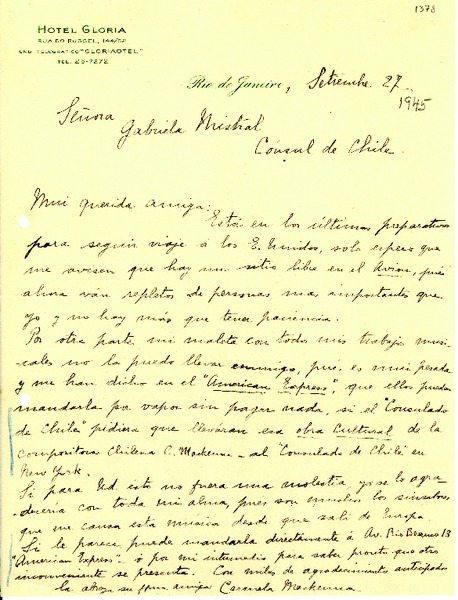 1378
HOTEL GLORIA
RUA DO RUSSEL, 144/52
END. TELEGRAFICO "GLORIAOTEL"
TEL. 25-7272
Rio de Janeiro, Setiembre 27
1945
Señora
Gabriela Mistral
Cónsul de Chile
Mui querida amiga:
Está en los últimos preparativos
para seguir viaje á los E. Unidos, solo espero que
me avisen que hay un sitio libre en el Avion, pués
ahora ván repletos de personas mas importantes que
yo y no hay más que tener paciencia.
Por otra parte mi maleta con todos mis trabajos musi-
cales no la puedo llevar conmigo, pués es mui pesada
y me han dicho en el "American Express", que ellos pueden
mandarla por vapor sin pagar nada, si el "Consulado
de Chile" pidiera que lleváran esa obra Cultural de la
compositora Chilena C. Mackenna - al "Consulado de Chile" en
New York.
Si para Ud esto no fuera una molestia, yo se lo agra-
deceria con toda mi alma, pues son muchos los sinsabores
que me causa esta música desde que sali de Europa.
Si le parece, puede mandarla directamente á Av. Rio Branco 13
"American Express" - ó por mi intermedio para saber pronto que otro
inconveniente se presenta. Con miles de agradecimientos anticipados
la su amiga Carmela Mackenna